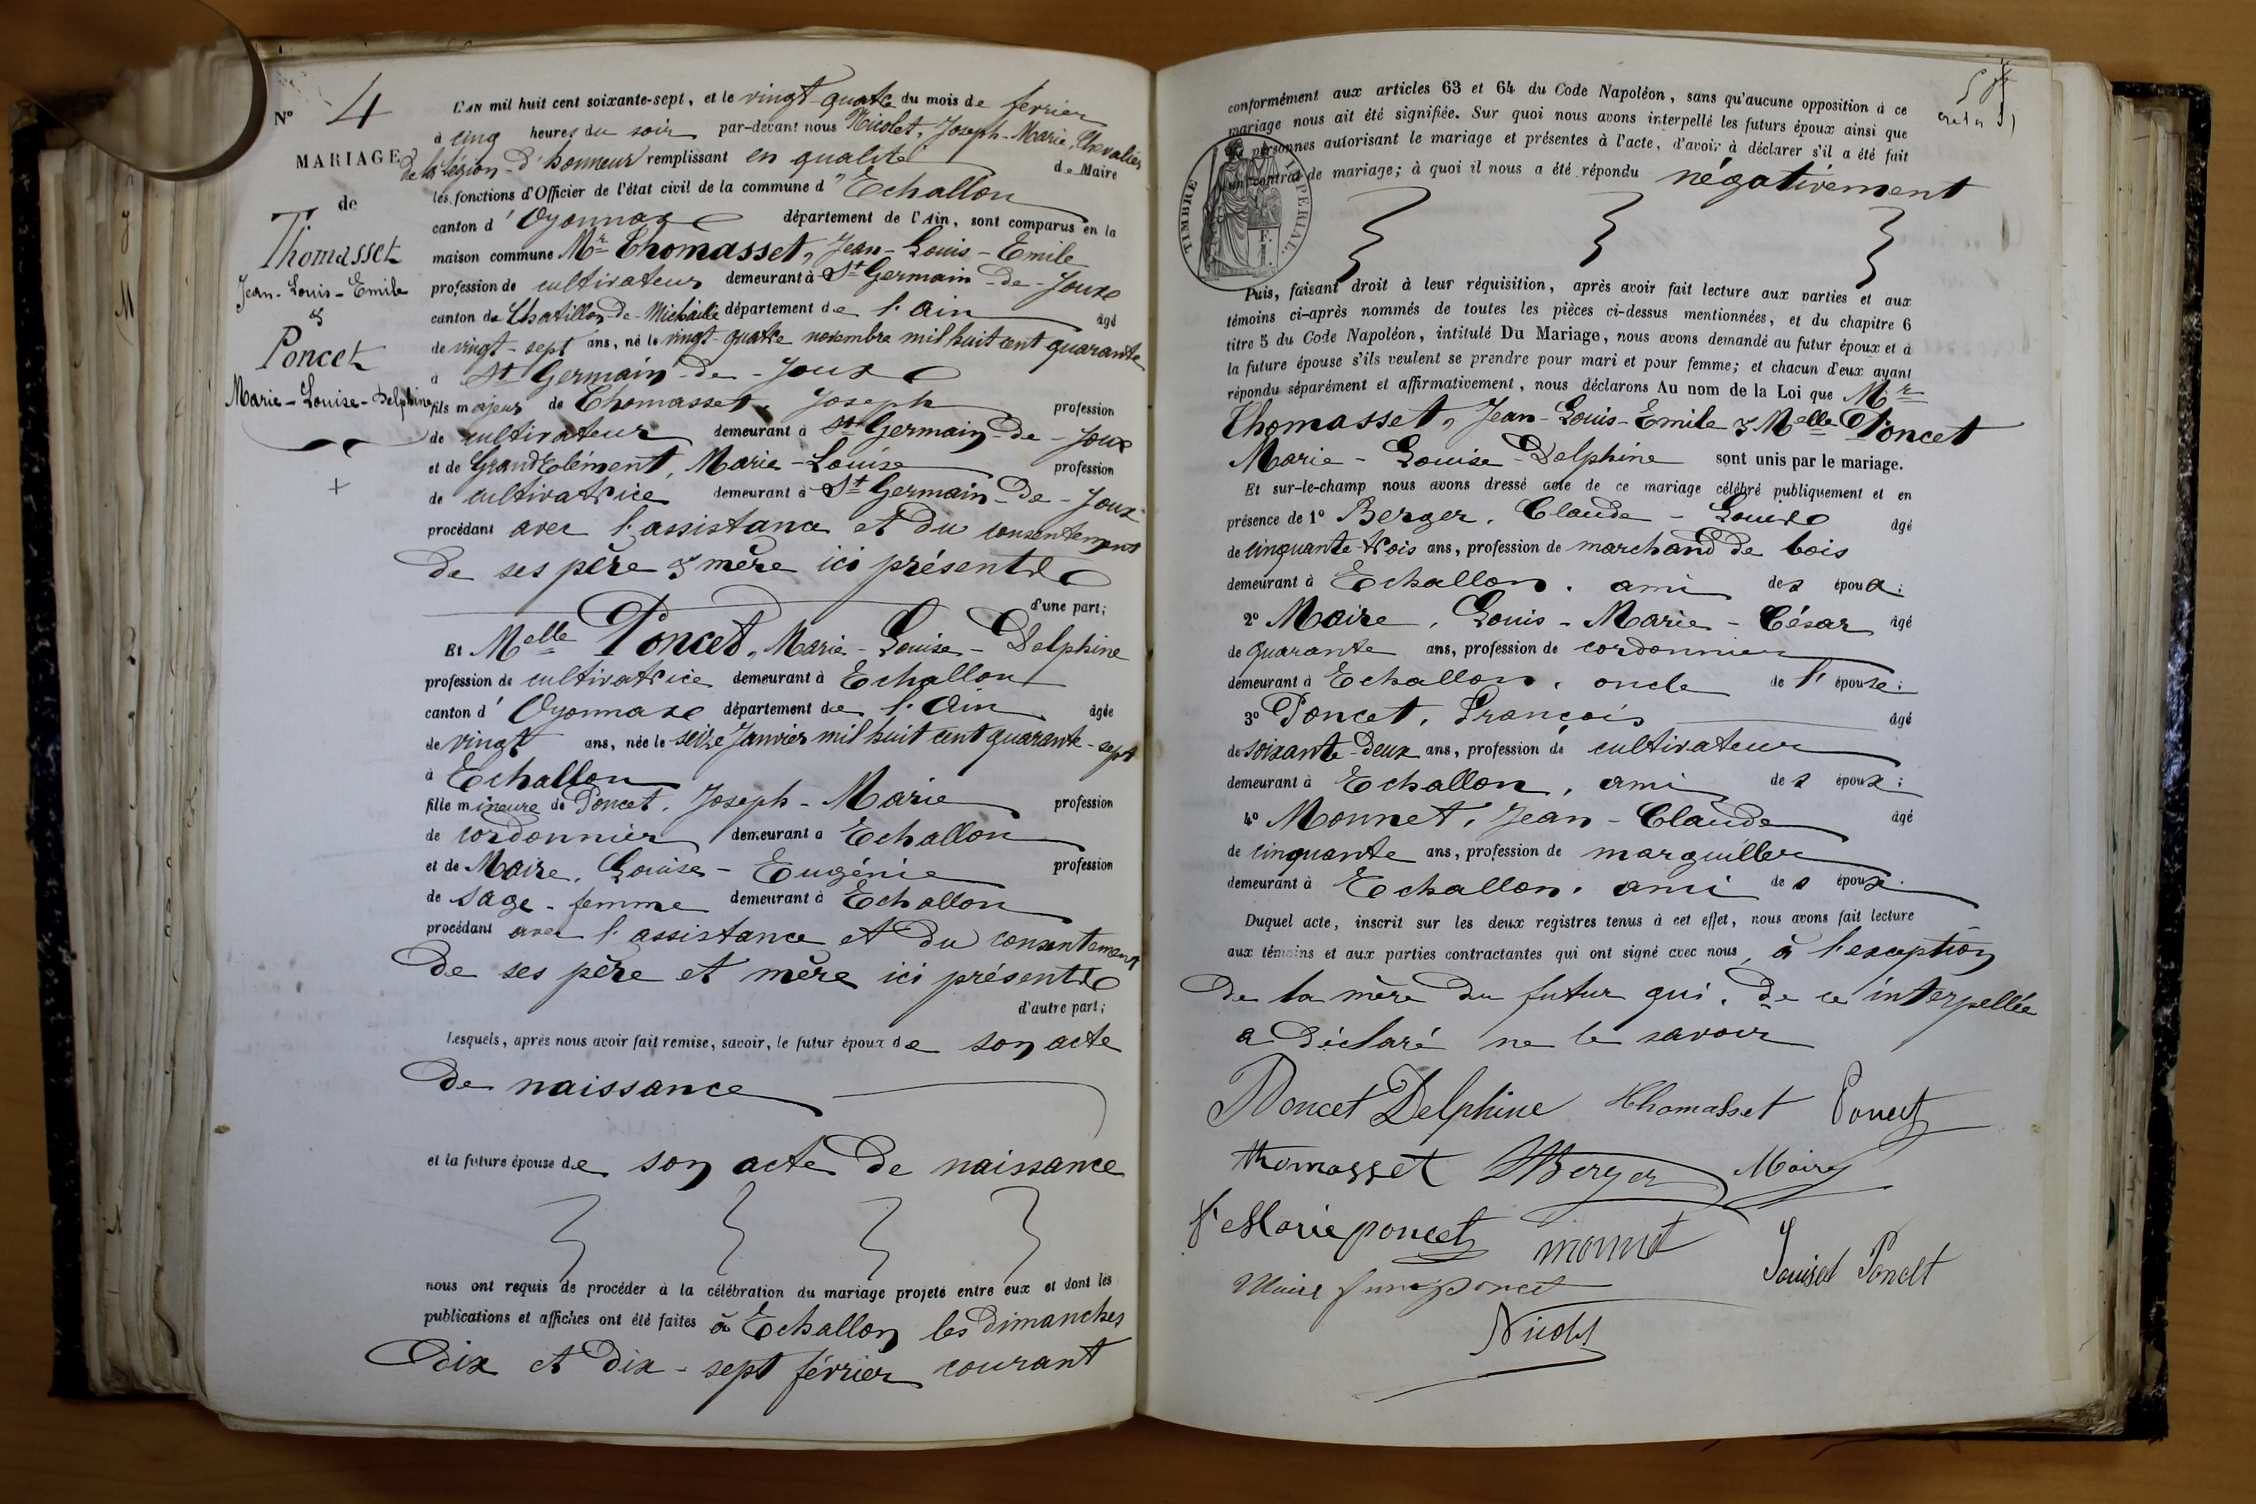 N° 4
MARIAGE
de
Thomasset
Jean-Louis-Emile
&
Poncet
Marie-Louise-Delphine
L'AN mil huit cent soixante-sept, et le vingt-quatre du mois de fevrier
à cinq heures du soir par-devant nous Nicolet, Joseph-Marie, Chevalier
de la légion-d'honneur remplissant en qualité de Maire
les fonctions d'Officier de l'état civil de la commune d'Echallon
canton d'Oyonnax département de l'Ain, sont comparus en la
maison commune Mr Thomasset, Jean-Louis-Emile
profession de cultivateur demeurant à St Germain-de-Joux
canton de Chatillon-de-Michaille département de l'Ain âgé
de vingt-sept ans, né le vingt-quatre novembre mil huit cent quarante
à St Germain-de-Joux
fils majeur de Thomasset, Joseph profession
de cultivateur demeurant à St Germain-de-Joux
et de GrandClément, Marie-Louise profession
de cultivatrice demeurant à St Germain-de-Joux
procédant avec l'assistance et du consentement
de ses père & mère ici présents
d'une part;
Et Melle Poncet, Marie-Louise-Delphine
profession de cultivatrice demeurant à Echallon
canton d'Oyonnax département de l'Ain âgée
de vingt ans, née le seize Janvier mil huit cent quarante-sept
à Echallon
fille mineure de Poncet, Joseph-Marie profession
de cordonnier demeurant à Echallon
et de Maire, Louise-Eugénie profession
de sage-femme demeurant à Echallon
procédant avec l'assistance et du consentement
de ses père et mère ici présents
d'autre part;
Lesquels, après nous avoir fait remise, savoir, le futur époux de son acte
de naissance
et la future épouse de son acte de naissance
nous ont requis de procéder à la célébration du mariage projeté entre eux et dont les
publications et affiches ont été faites à Echallon les dimanches
dix et dix-sept février courant
conformément aux articles 63 et 64 du Code Napoléon, sans qu'aucune opposition à ce
mariage nous ait été signifiée. Sur quoi nous avons interpellé les futurs époux ainsi que
les personnes autorisant le mariage et présentes à l'acte, d'avoir à déclarer s'il a été fait
un contrat de mariage; à quoi il nous a été répondu négativement
TIMBRE IMPERIAL.
Puis, faisant droit à leur réquisition, après avoir fait lecture aux parties et aux
témoins ci-après nommés de toutes les pièces ci-dessus mentionnées, et du chapitre 6
titre 5 du Code Napoléon, intitulé Du Mariage, nous avons demandé au futur époux et à
la future épouse s'ils veulent se prendre pour mari et pour femme; et chacun d'eux ayant
répondu séparément et affirmativement, nous déclarons Au nom de la Loi que Mr
Thomasset, Jean-Louis-Emile & Melle Poncet
Marie-Louise-Delphine sont unis par le mariage.
Et sur-le-champ nous avons dressé acte de ce mariage célébré publiquement et en
présence de 1° Berger, Claude-Louis âgé
de cinquante-trois ans, profession de marchand de bois
demeurant à Echallon, ami des époux;
2° Maire, Louis-Marie-César âgé
de quarante ans, profession de cordonnier
demeurant à Echallon, oncle de l'épouse;
3° Poncet, François âgé
de soixante-deux ans, profession de cultivateur
demeurant à Echallon, ami des époux;
4° Monnet, Jean-Claude âgé
de cinquante ans, profession de marguiller
demeurant à Echallon, ami des époux.
Duquel acte, inscrit sur les deux registres tenus à cet effet, nous avons fait lecture
aux témoins et aux parties contractantes qui ont signé avec nous, à l'exception
de la mère du futur qui, de ce interpellée
a déclaré ne le savoir
Poncet Delphine Thomasset Poncet
thomasset Berger Maire
Marie poncet monnet Louise Poncet
Maire femme poncet
Nicolet